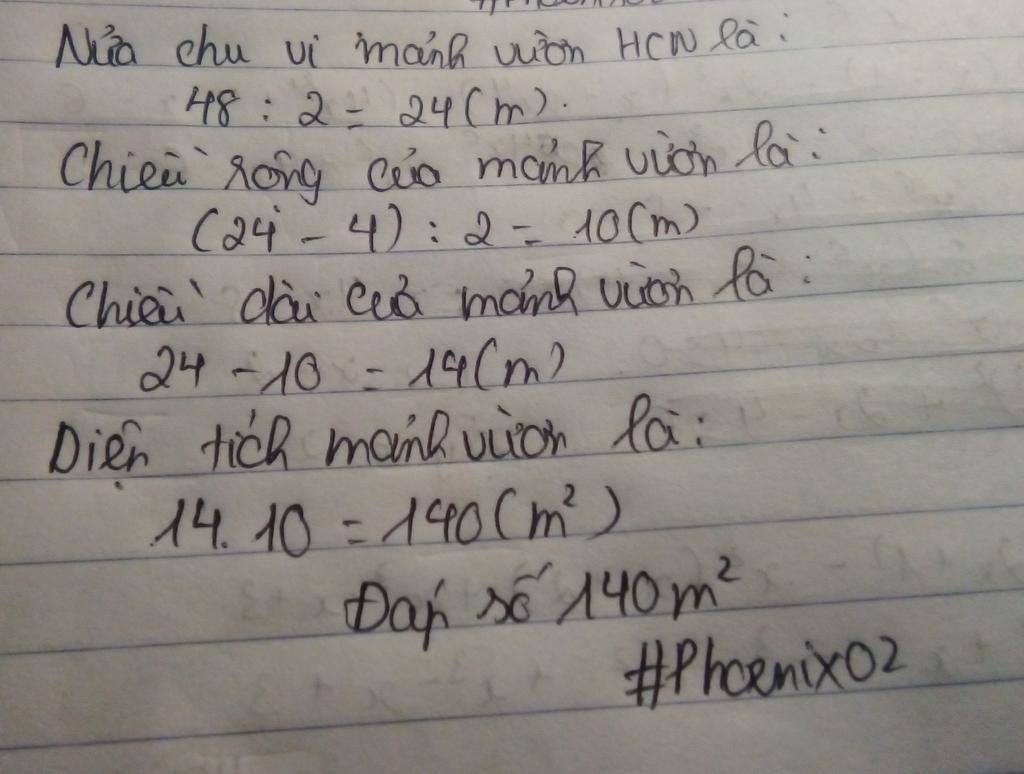 Nửa chu vi mảnh vườn HCN là:
48 : 2 = 24(m).
Chiều rộng của mảnh vườn là:
(24 - 4) : 2 = 10(m)
Chiều dài của mảnh vườn là:
24 - 10 = 14(m)
Diện tích mảnh vườn là:
14. 10 = 140(m²)
Đáp số 140m²
#Phoenix02